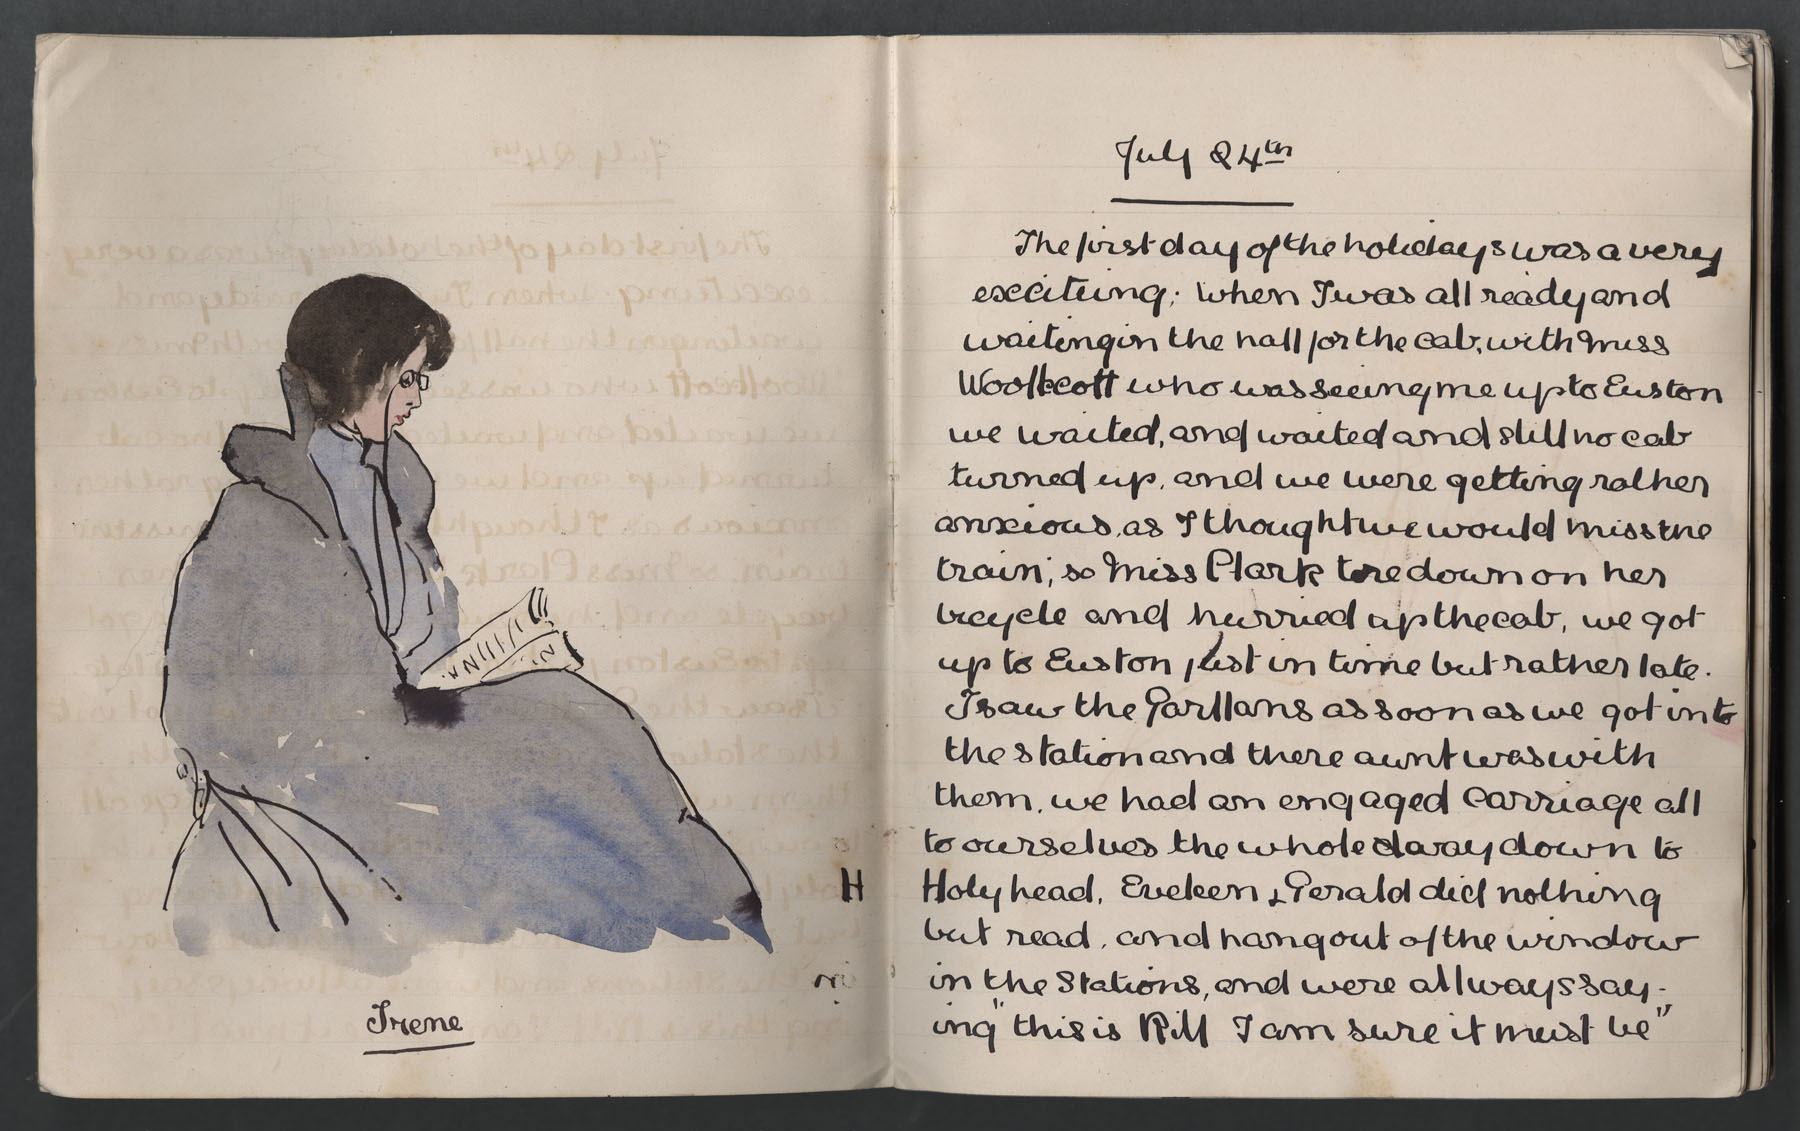 Irene
July 24th
The first day of the holidays was a very
exciteing; when I was all ready and
waiting in the hall for the cab, with Miss
Woollcott who was seeing me up to Euston
we waited, and waited and still no cab
turned up, and we were getting rather
anxious, as I thought we would miss the
train, so Miss Clark tore down on her
bicycle and hurried up the cab, we got
up to Euston just in time but rather late.
I saw the Garllans as soon as we got into
the station and there aunt was with
them, we had an engaged carriage all
to ourselves the whole way down to
Holyhead, Eveleen & Gerald did nothing
but read, and hang out of the window
in the stations, and were allways say-
ing "this is Rill I am sure it must be"